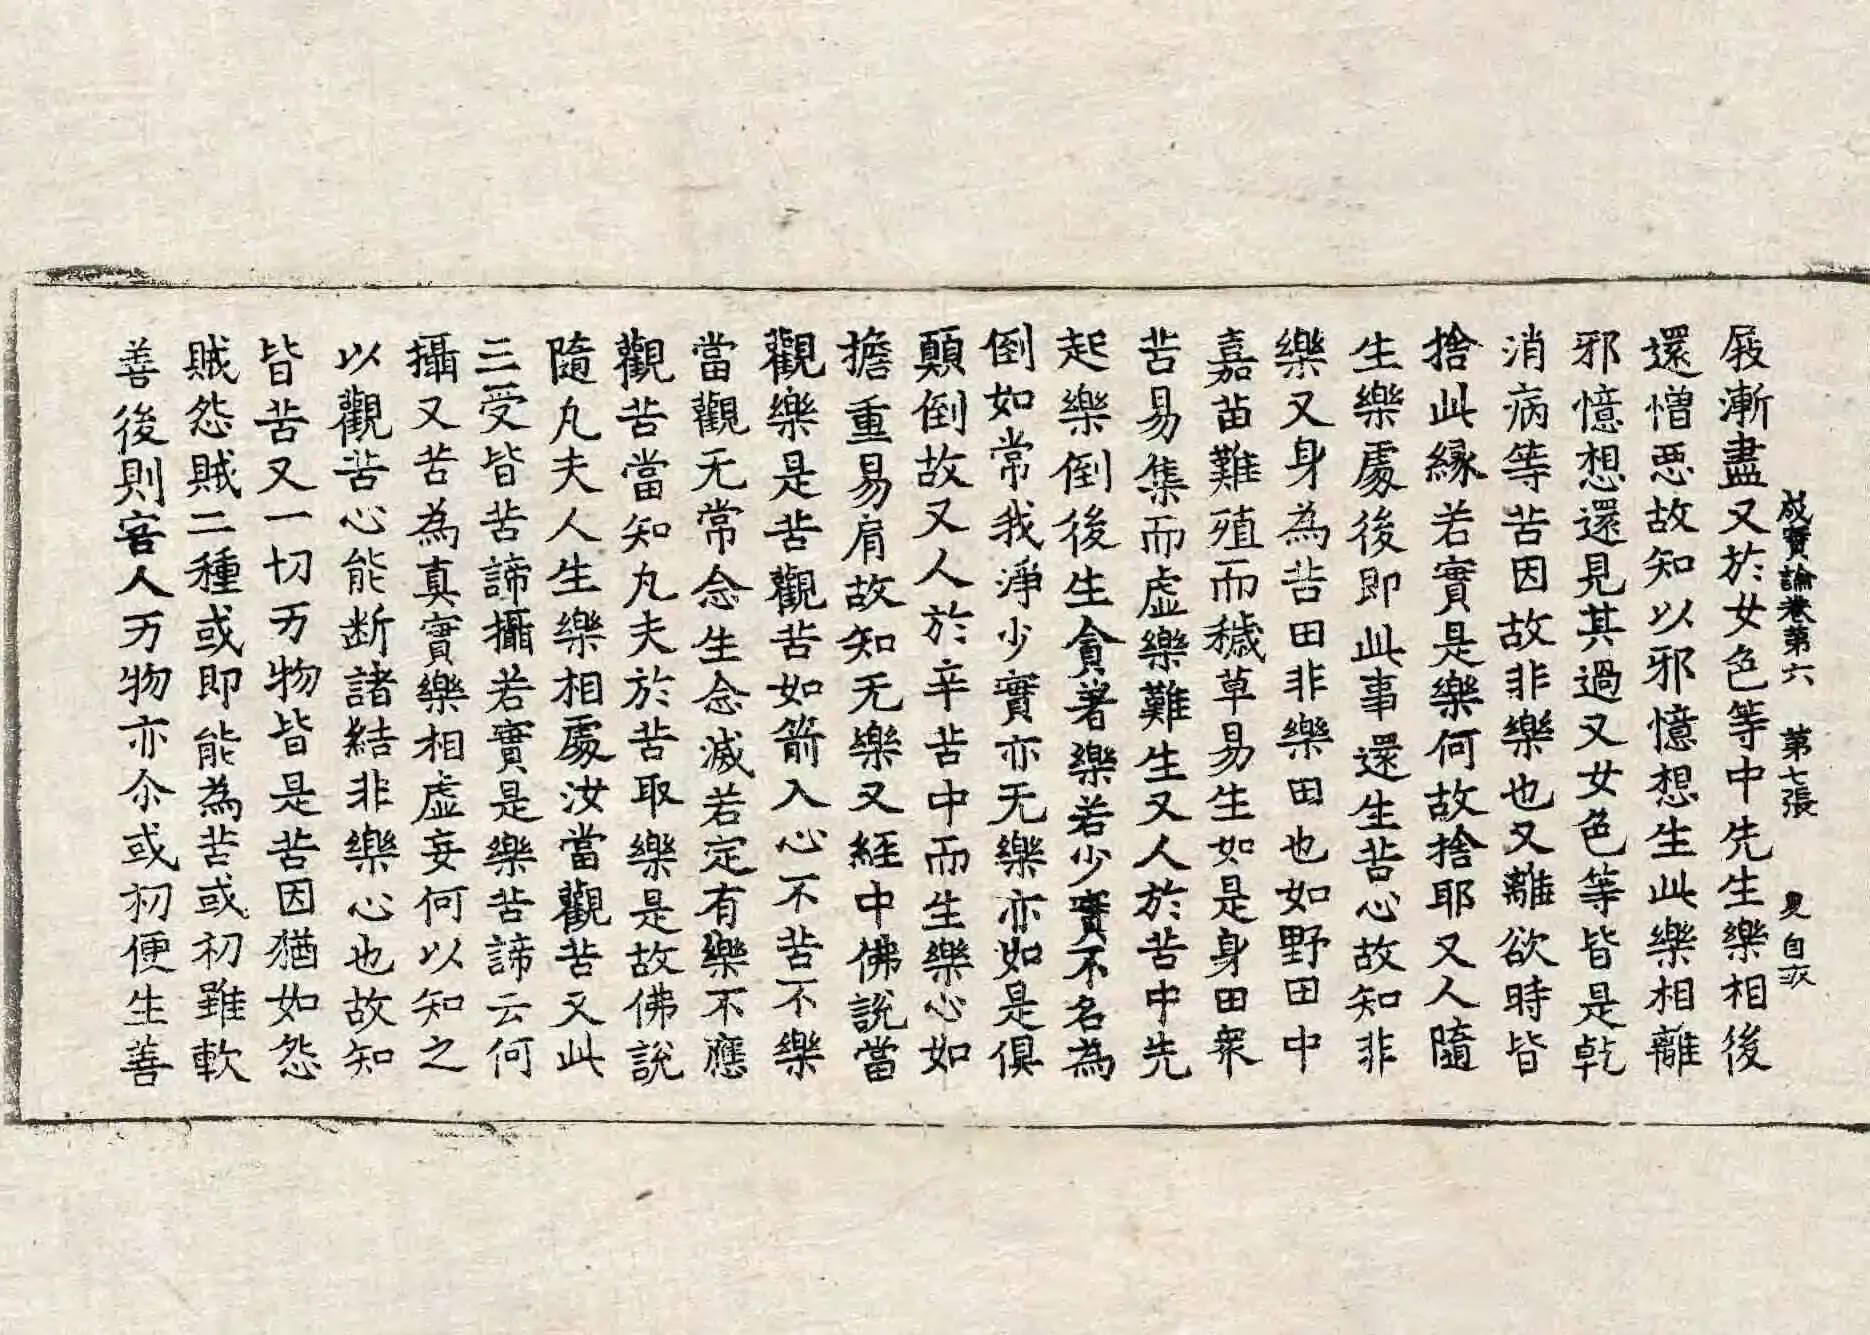 成實論卷第六　第七張　夙自次
屐漸盡又於女色等中先生樂相後
還憎惡故知以邪憶想生此樂相離
邪憶想還見其過又女色等皆是乾
消病等苦因故非樂也又離欲時皆
捨此緣若實是樂何故捨耶又人隨
生樂處後即此事還生苦心故知非
樂又身為苦田非樂田也如野田中
嘉苗難殖而穢草易生如是身田衆
苦易集而虛樂難生又人於苦中先
起樂倒後生貪著樂若少實不名為
倒如常我淨少實亦无樂亦如是俱
顛倒故又人於辛苦中而生樂心如
擔重易肩故知无樂又經中佛說當
觀樂是苦觀苦如箭入心不苦不樂
當觀无常念生念滅若定有樂不應
觀苦當知凡夫於苦取樂是故佛說
隨凡夫人生樂相處汝當觀苦又此
三受皆苦諦攝若實是樂苦諦云何
攝又苦為真實樂相虛妄何以知之
以觀苦心能断諸結非樂心也故知
皆苦又一切万物皆是苦因猶如怨
賊怨賊二種或即能為苦或初雖軟
善後則害人万物亦尒或初便生善